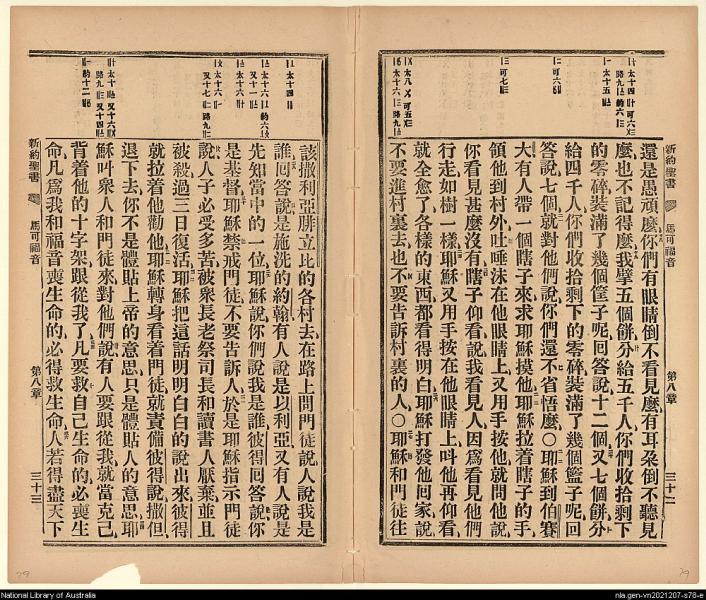 新約聖書
馬可福音
第八章
三十二
還是愚頑麼你們有眼睛倒不看見麼有耳朶倒不聽見
麼也不記得麼我擘五個餅分給五千人你們收拾剩下
的零碎裝滿了幾個筐子呢回答說十二個又七個餅分
給四千人你們收拾剩下的零碎裝滿了幾個籃子呢回
答說七個就對他們說你們還不省悟麼○耶穌到伯賽
大有人帶一個瞎子來求耶穌摸他耶穌拉着瞎子的手
領他到村外吐唾沫在他眼睛上又用手按他就問他說
你看見甚麼沒有瞎子仰看說我看見人因爲看見他們
行走如樹一樣耶穌又用手按在他眼睛上呌他再仰看
就全愈了各樣的東西都看得明白耶穌打發他回家說
不要進村裏去也不要告訴村裏的人○耶穌和門徒往
該撒利亞腓立比的各村去在路上問門徒說人說我是
誰回答說是施洗的約翰有人說是以利亞又有人說是
先知當中的一位耶穌說你們說我是誰彼得回答說你
是基督耶穌禁戒門徒不要告訴人於是耶穌指示門徒
說人子必受多苦被衆長老祭司長和讀書人厭棄並且
被殺過三日復活耶穌把這話明明白白的說出來彼得
就拉着他勸他耶穌轉身看着門徒就責備彼得說撒但
退下去你不是體貼上帝的意思只是體貼人的意思耶
穌呌衆人和門徒來對他們說有人要跟從我就當克己
背着他的十字架跟從我了凡要救自己生命的必喪生
命凡爲我和福音喪生命的必得救生命人若得盡天下
新約聖書
馬可福音
第八章
三十三
National Library of Australia
nla.gen-vn2021207-s78-e